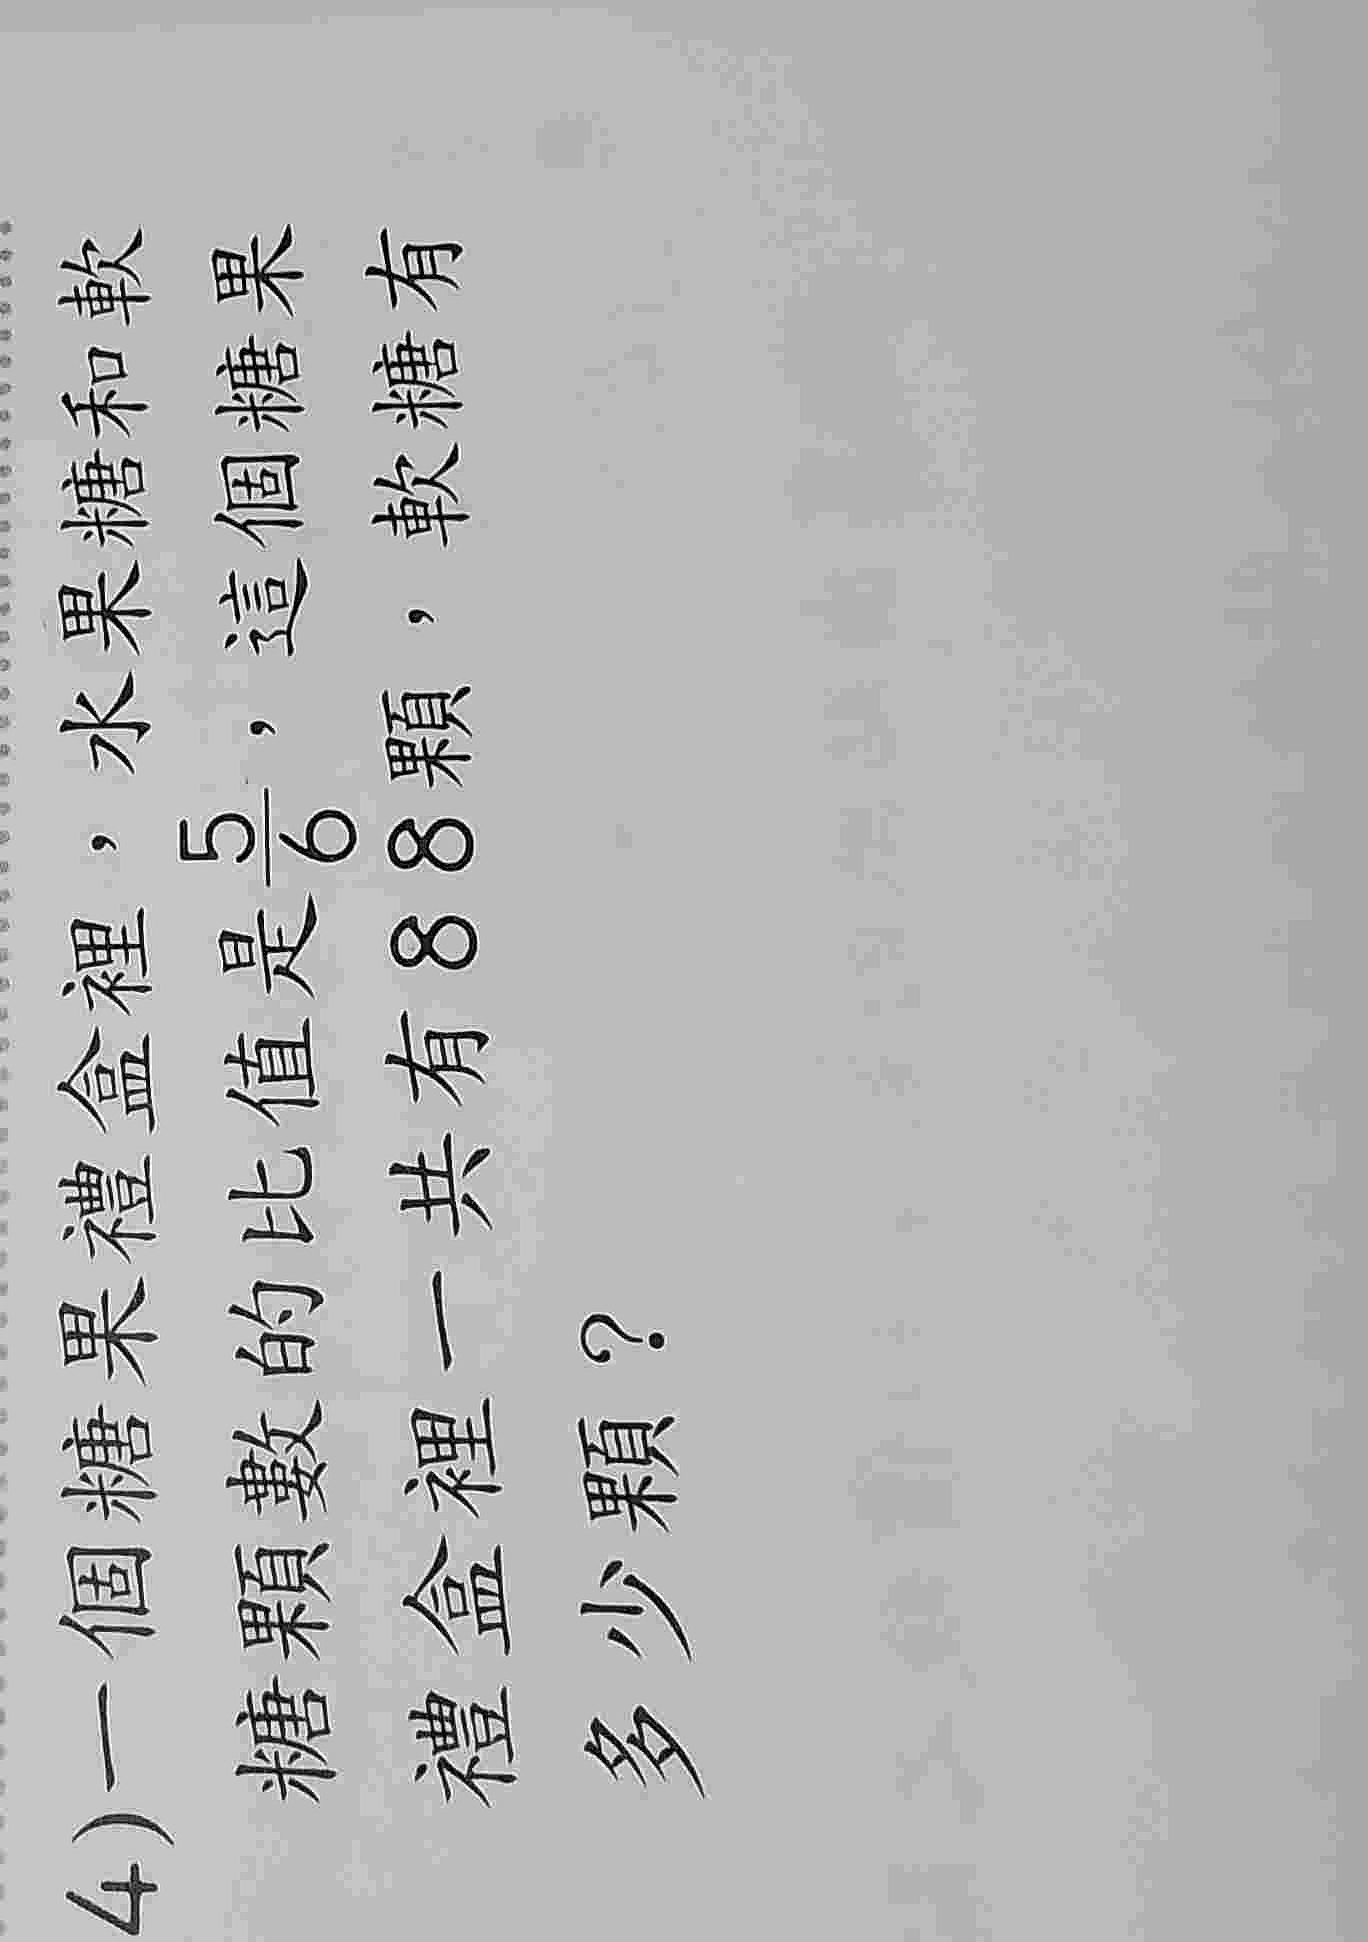 4)一個糖果禮盒裡，水果糖和軟
糖顆數的比值是5/6，這個糖果
禮盒裡一共有88顆，軟糖有
多少顆？